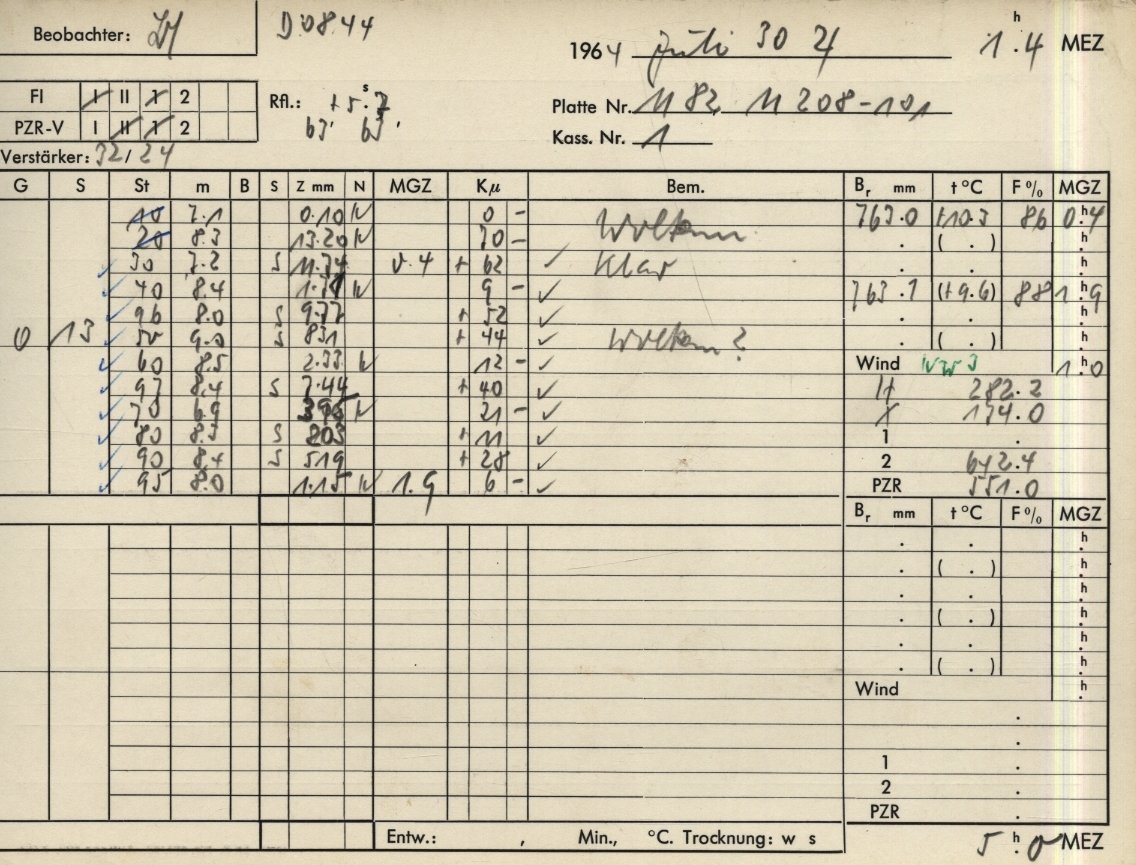 Beobachter:
D 0844
1964 Juli 30 1 h .4 MEZ
FI I II 1 2
PZR-V I II 1 2
Rfl.: +5 s .
63. 63.
Platte Nr. 1182 11208-101
Kass. Nr. 1
Verstärker: 32/24
G S St m B S Z mm N MGZ Kμ Bem. Br mm t °C F % MGZ
10 7.1 0.10 N 0 - Wolken 763.0 +10.3 86 0 h .4
20 8.3 13.20 N 30 - . ( . ) h .
30 7.2 S 11.74 0.4 + 62 ✓ Klar . . h .
40 8.4 N 9 - ✓ 763.1 (+9.6) 88 1 h .9
96 8.0 S 9.77 + 52 ✓ . . h .
0 13 50 9.0 S 831 + 44 ✓ Wolken? . ( . ) h .
60 8.5 2.33 N 12 - ✓ Wind NW 3 1 h .0
97 8.4 S 7.44 + 40 ✓ H 282.2
70 6.9 N 21 - ✓ X 174.0
80 8.3 S 203 + 11 ✓ 1 .
90 8.4 S 519 + 28 ✓ 2 642.4
95 8.0 1.15 N 1.9 6 - ✓ PZR 551.0
Br mm t °C F % MGZ
. . h .
. ( . ) h .
. . h .
. ( . ) h .
. . h .
. ( . ) h .
Wind h .
.
.
1 .
2 .
PZR .
Entw.: , Min., °C. Trocknung: w s 5 h .0 MEZ